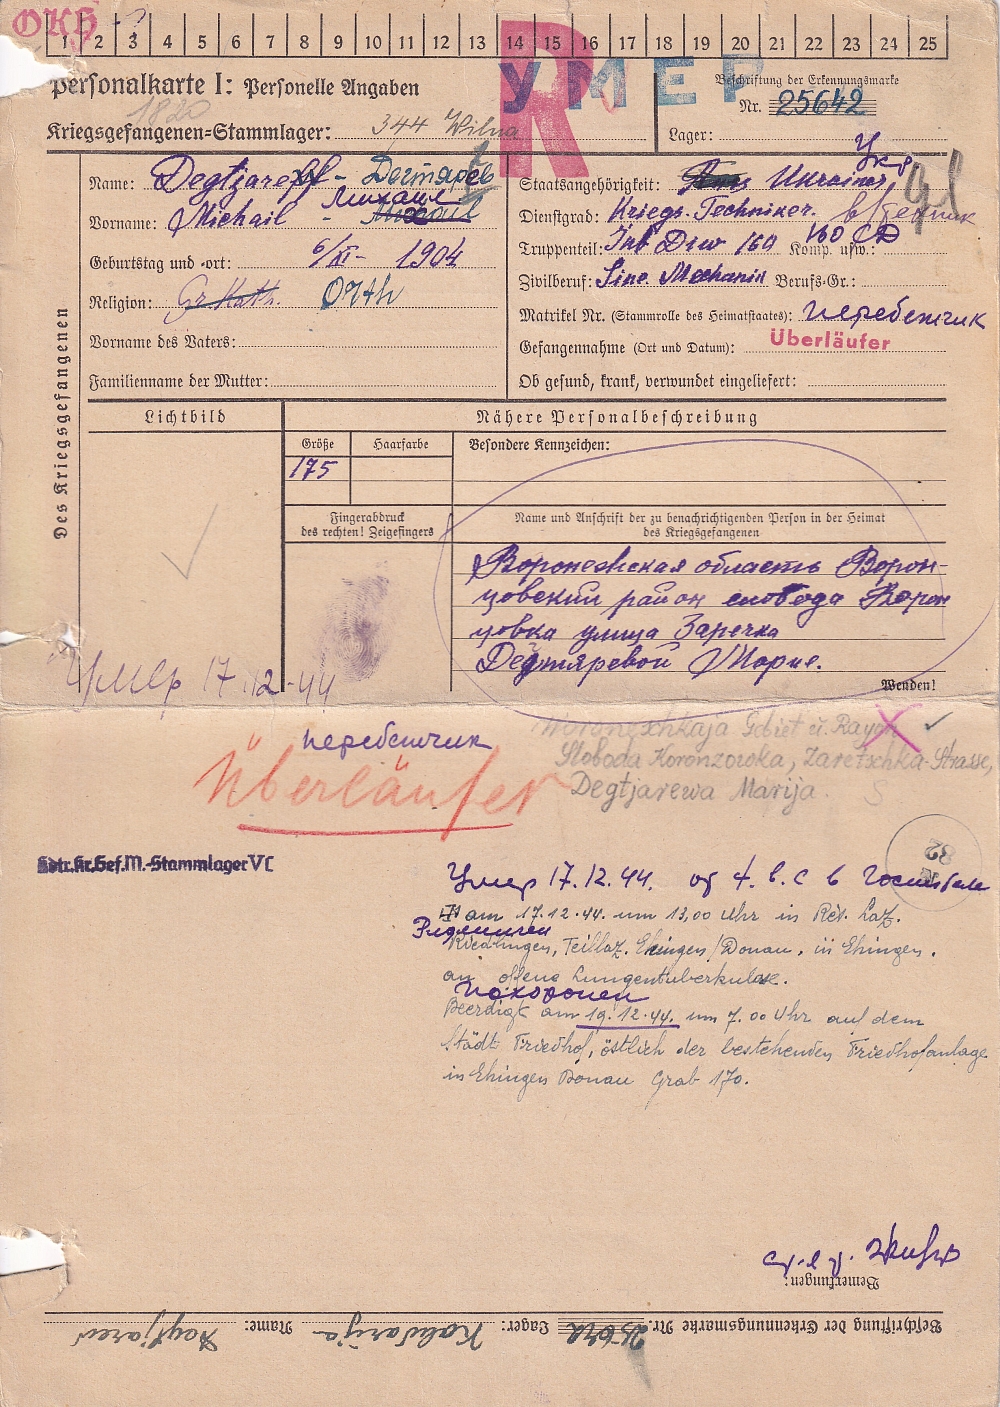 OKH
1 2 3 4 5 6 7 8 9 10 11 12 13 14 15 16 17 18 19 20 21 22 23 24 25
Personalkarte I: Personelle Angaben
1820
Kriegsgefangenen-Stammlager: 344 Wilna
R
УМЕР
Beschriftung der Erkennungsmarke
Nr. 25642
Lager:
Des Kriegsgefangenen
Name: Degtjareff - Дегтярёв
Vorname: Michail - Михаил
Geburtstag und -ort: 6/XI - 1904
Religion: Gr. Kath. Orth
Vorname des Vaters:
Familienname der Mutter:
Укр
Staatsangehörigkeit: Ukrainer,
Dienstgrad: Kriegs-Techniker. в/техник
Truppenteil: Inf Div 160 Komp. usw.: 160 СД
Zivilberuf: Mechanik Berufs-Gr.:
Matrikel Nr. (Stammrolle des Heimatstaates): перебежчик
Gefangennahme (Ort und Datum): Überläufer
Ob gesund, krank, verwundet eingeliefert:
Lichtbild
Nähere Personalbeschreibung
Größe Haarfarbe Besondere Kennzeichen:
175
Fingerabdruck
des rechten! Zeigefingers
Name und Anschrift der zu benachrichtigenden Person in der Heimat
des Kriegsgefangenen
Воронежская область Ворон-
цовский район слобода Ворон
цовка улица Заречка
Дегтяревой Марие.
Wenden!
Умер 17.12.44
перебежчик
Überläufer
Woroneschkaja Gebiet u. Rayon
Sloboda Woronzowka, Zaretschka-Strasse,
Degtjarewa Marija.
Kdtr.Kr.Gef.M.-Stammlager V C
32
Умер 17.12.44. от т.в.с в Госпитале
am 17.12.44. um 13,00 Uhr in Res. Laz.
Ридлинген
Riedlingen, Teillaz. Ehingen/Donau, in Ehingen.
an offene Lungentuberkulose.
Похоронен
Beerdigt am 19.12.44. um 7.00 Uhr auf dem
Städt. Friedhof, östlich der bestehenden Friedhofanlage
in Ehingen Donau Grab 170.
Bemerkungen:
Beschriftung der Erkennungsmarke Nr. 25642 Lager: Kalvarija Name: Degtjarew